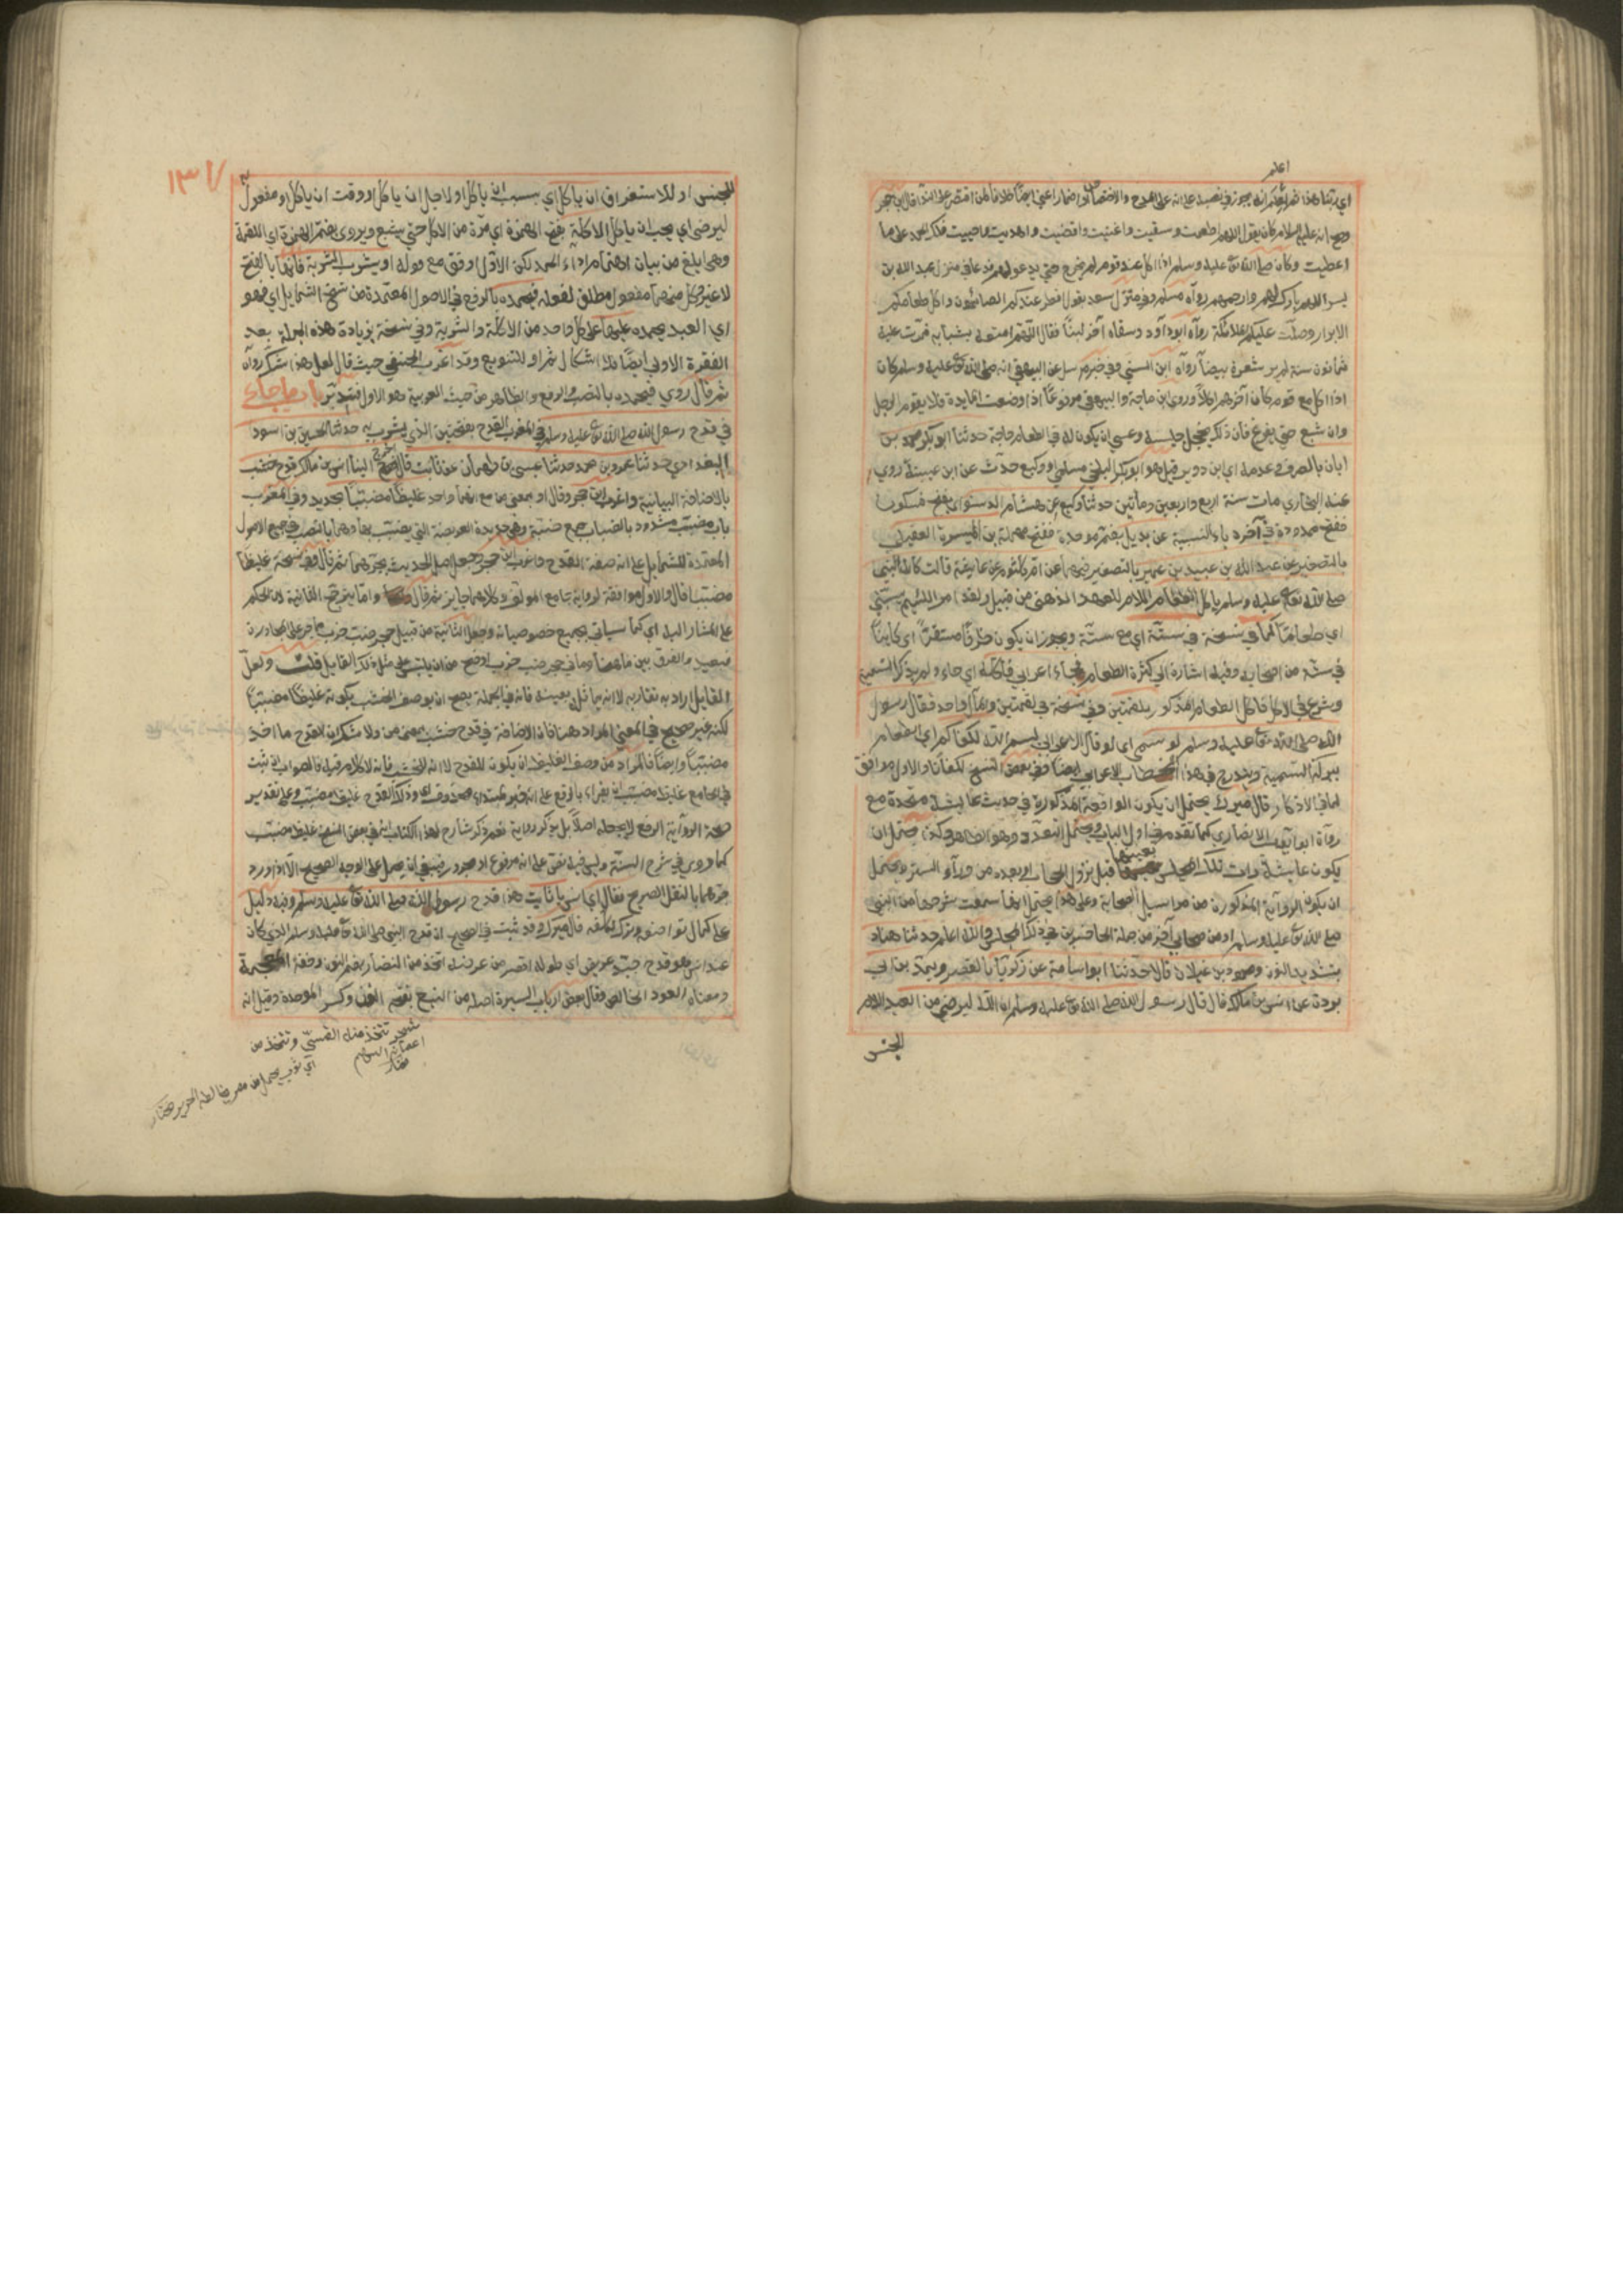 اعلم
وصح انه عليه السلام كان يقول اللهم اطعمت وسقيت واغنيت واقنيت وهديت واحييت فلك الحمد على ما
اعطيت وكان صلى الله تع عليه وسلم اذا اكل عند قوم لم يخرج حتى يدعو لهم فدعا في منزل عبد الله بن
بسر اللهم بارك لهم وارحمهم رواه مسلم وفي منزل سعد بقوله افطر عندكم الصائمون واكل طعامكم
الابرار وصلت عليكم الملائكة رواه ابو داود وسقاه آخر لبنًا فقال اللهم امتعه بشبابه فمرت عليه
ثمانون سنة لم ير شعرة بيضاء رواه ابن السني وفي خبر مرسل عن البيهقي انه صلى الله تع عليه وسلم كان
اذا اكل مع قوم كان آخرهم اكلاً وروى ابن ماجة والبيهقي مرفوعًا اذا وضعت المايدة فلا يقوم الرجل
وان شبع حتى يفرغ فان ذلك يخجل جليسه وعسى ان يكون له في الطعام حاجة حدثنا ابو بكر محمد بن
ابان بالصرف وعدمه اي ابن وزير قيل هو ابو بكر البلخي مستملي وكيع حدث عن ابن عيينة روى
عنه البخاري مات سنة اربع واربعين ومأتين حدثنا وكيع عن هشام الدستوائي بفتح فسكون
ففتح ممدودة في آخره ياء النسبة عن بديل بضم موحدة ففتح مهملة بن الميسرة العقيلي
بالتصغير عن عبد الله بن عبيد بن عمير بالتصغير فيهما عن ام كلثوم عن عايشة قالت كان النبي
صلى الله تع عليه وسلم يأكل الطعام اللام للعهد الذهني من قبيل ولقد امر على اللئيم يسبني
اي طعامًا كما في نسخة في ستة اي مع ستة ويجوز ان يكون ظرفًا مستقرًا اي كاينًا
في ستة من اصحابه وفيه اشارة الى كثرة الطعام فجاء اعرابي فاكله اي جاء ولم يذكر التسمية
وشرع في الاكل فاكل الطعام المذكور بلقمتين وفي نسخة في لقمتين ومآلهما واحد فقال رسول
الله صلى الله تع عليه وسلم لو سمى اي لو قال الاعرابي بسم الله لكفاكم اي الطعام
ببركة التسمية ويندرج في هذا الخطاب الاعرابي ايضًا وفي بعض النسخ لكفانا والاول موافق
لما في الاذكار قال ميرك يحتمل ان يكون الواقعة المذكورة في حديث عايشة متحدة مع
رواة ابو ايوب الانصاري كما تقدم في اول الباب ويحتمل التعدد وهو الظاهر وكذا يحتمل ان
يكون عايشة رات تلك المجلس بعينها قبل نزول الحجاب او بعده من وراء الستر ويحتمل
ان يكون الرواية المذكورة من مراسيل الصحابة وعلى هذا يحتمل انها سمعت شرحها من النبي
صلى الله تع عليه وسلم او من صحابي آخر من جملة الحاضرين في ذلك المجلس والله اعلم حدثنا هناد
بتشديد النون ومحمود بن غيلان قالا حدثنا ابو اسامة عن زكريا بالقصر ويمد بن ابي
بردة عن انس بن مالك قال قال رسول الله صلى الله تع عليه وسلم ان الله ليرضى من العبد اللام
الجنس
١٣٧
للجنس او للاستغراق ان يأكل اي بسبب ان يأكل او لاجل ان يأكل او وقت ان يأكل او مفعول به
ليرضى اي يحب ان يأكل الاكلة بفتح الهمزة اي مرة من الاكل حتى يشبع ويروى بضم الهمزة اي اللقمة
وهي ابلغ من بيان اهتمام اداء الحمد لكن الاول اوفق مع قوله او يشرب الشربة فانها بالفتح
لا غير وكل منهما مفعول مطلق لفعله فيحمده بالرفع في الاصول المعتمدة من نسخ الشمايل اي فهو
اي العبد يحمده عليها على كل واحد من الاكلة والشربة وفي نسخة بزيادة هذه الجملة بعد
الفقرة الاولى ايضًا فلا اشكال ثم او للتنويع وقد اغرب الحنفي حيث قال لعل هذا شك رواه
ثم قال روي فيحمده بالنصب والرفع والظاهر من حيث العربية هو الاول فتدبر باب ما جاء
في قدح رسول الله صلى الله تع عليه وسلم في المغرب القدح بفتحتين الذي يشرب به حدثنا الحسين بن اسود
البغدادي حدثنا عمرو بن محمد حدثنا عيسى بن طهمان عن ثابت قال اخرج الينا انس بن مالك قدح خشب
بالاضافة البيانية واغرب ابن حجر وقال او بمعنى من مع انهما واحد غليظًا مضببًا بحديد وفي المغرب
باب مضبب مشدود بالضباب جمع ضبة وهي حديدة العريضة التي يضبب بها وهما بالنصب في جميع الاصول
المعتمدة للشمايل على انه صفة القدح واغرب ابن حجر وجعل اصل الحديث بجرهما ثم قال وفي نسخة غليظًا
مضببًا قال والاول موافقة لرواية جامع المؤلف وكلاهما جايز ثم قال وانما يترجح الثانية لان الحكم
على المشار اليه اي كما سياتي بجميع خصوصياته وجعل الثانية من قبيل حجر ضب خرب بما جر على المجاورة
فبعيد والفرق بين ما هنا وما في حجر ضب خرب اوضح من ان يلتبس على مثله ذلك القايل قلت ولعل
القايل اراد به تقاربه لا انه يماثل بعينه فانه في الجملة يصح ان يوصف الخشب بكونه غليظًا مضببًا
لكنه غير صحيح في المعنى المراد هنا فان الاضافة في قدح خشب بمعنى من ولا شك ان القدح ما اخذ
مضببًا وايضًا فالمراد من وصف الغليظ ان يكون للقدح لا انه للخشب فانه لا كلام فيه فالصواب ان ثبت
في الجامع غليظ مضبب ان يقراء بالرفع على انه خبر لمبتداء محذوف اي وذلك القدح غليظ مضبب وعلى تقدير
صحة الرواية الرفع لا يجعله اصلاً بل يذكر رواية نعم ذكر شارح لهذا الكتاب ان في بعض النسخ غليظ مضبب
كما روي في شرح السنة وليس فيه نص على انه مرفوع او مجرور فينبغي ان يحمل على الوجه الصحيح الا اذا ورد
جرهما بالنقل الصريح فقال اي انس يا ثابت هذا قدح رسول الله صلى الله تع عليه وسلم وفيه دليل
على كمال تواضعه وترك تكلفه قال ميرك وقد ثبت في الصحيح ان قدح النبي صلى الله تع عليه وسلم الذي كان
عند انس هو قدح جيد عريض اي طوله اقصر من عرضه اتخذ من النضار بضم النون وخفة المعجمة
ومعناه العود الخالص وقال بعض ارباب السيرة اصله من النبع بفتح النون وكسر الموحدة وقيل انه
شجر تتخذ منه القسي وتتخذ من
اغصانه السهام
مختار